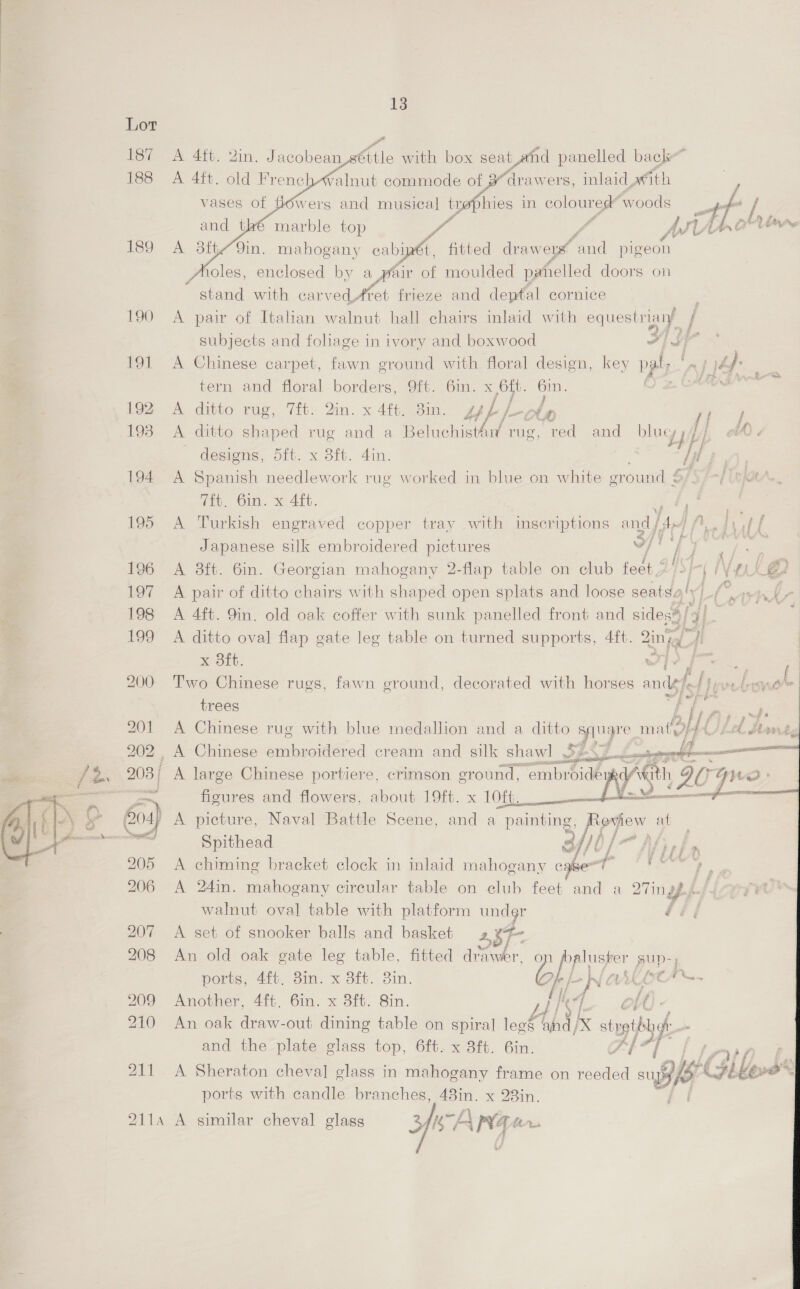 13
Lot
187 A 4ft. 2in. Jacobean settle with box seat and panelled back
188 A 4ft. old French walnut commode of 3 drawers, inlaid with
vases of flowers and musical trophies in coloured woods
and the marble top
189 A 3ft. 9in. mahogany cabinet, fitted drawers and pigeon
holes, enclosed by a pair of moulded panelled doors on
stand with carved fret frieze and dental cornice
190 A pair of Italian walnut hall chairs inlaid with equestrian
subjects and foliage in ivory and boxwood
191 A Chinese carpet, fawn ground with floral design, key pat-
tern and floral borders, 9ft. 6in. x 6ft. 6in.
192 A ditto rug, 7ft. 2in. x 4ft. 3in.
193 A ditto shaped rug and a Beluchistan rug, red and blue
designs, 5ft. x 3ft. 4in.
194 A Spanish needlework rug worked in blue on white ground
7ft. 6in. x 4ft.
195 A Turkish engraved copper tray with inscriptions and
Japanese silk embroidered pictures
196 A 3ft. 6in. Georgian mahogany 2-flap table on club feet
197 A pair of ditto chairs with shaped open splats and loose seats
198 A 4ft. 9in. old oak coffer with sunk panelled front and sides
199 A ditto oval flap gate leg table on turned supports, 4ft. 2in.
x 3ft.
200 Two Chinese rugs, fawn ground, decorated with horses and
trees
201 A Chinese rug with blue medallion and a ditto square mat
202 A Chinese embroidered cream and silk shawl
203 A large Chinese portiere, crimson ground, embroidered with
figures and flowers, about 19ft. x 10ft.
204 A picture, Naval Battle Scene, and a painting, Review at
Spithead
205 A chiming bracket clock in inlaid mahogany case
206 A 24in. mahogany circular table on club feet and a 27in.
walnut oval table with platform under
207 A set of snooker balls and basket
208 An old oak gate leg table, fitted drawer, on baluster sup-
ports, 4ft. 3in. x 3ft. 3in.
209 Another, 4ft. 6in. x 3ft. 8in.
210 An oak draw-out dining table on spiral legs and X stretcher
and the plate glass top, 6ft. x 3ft. 6in.
211 A Sheraton cheval glass in mahogany frame on reeded sup-
ports with candle branches, 43in. x 23in.
211A A similar cheval glass